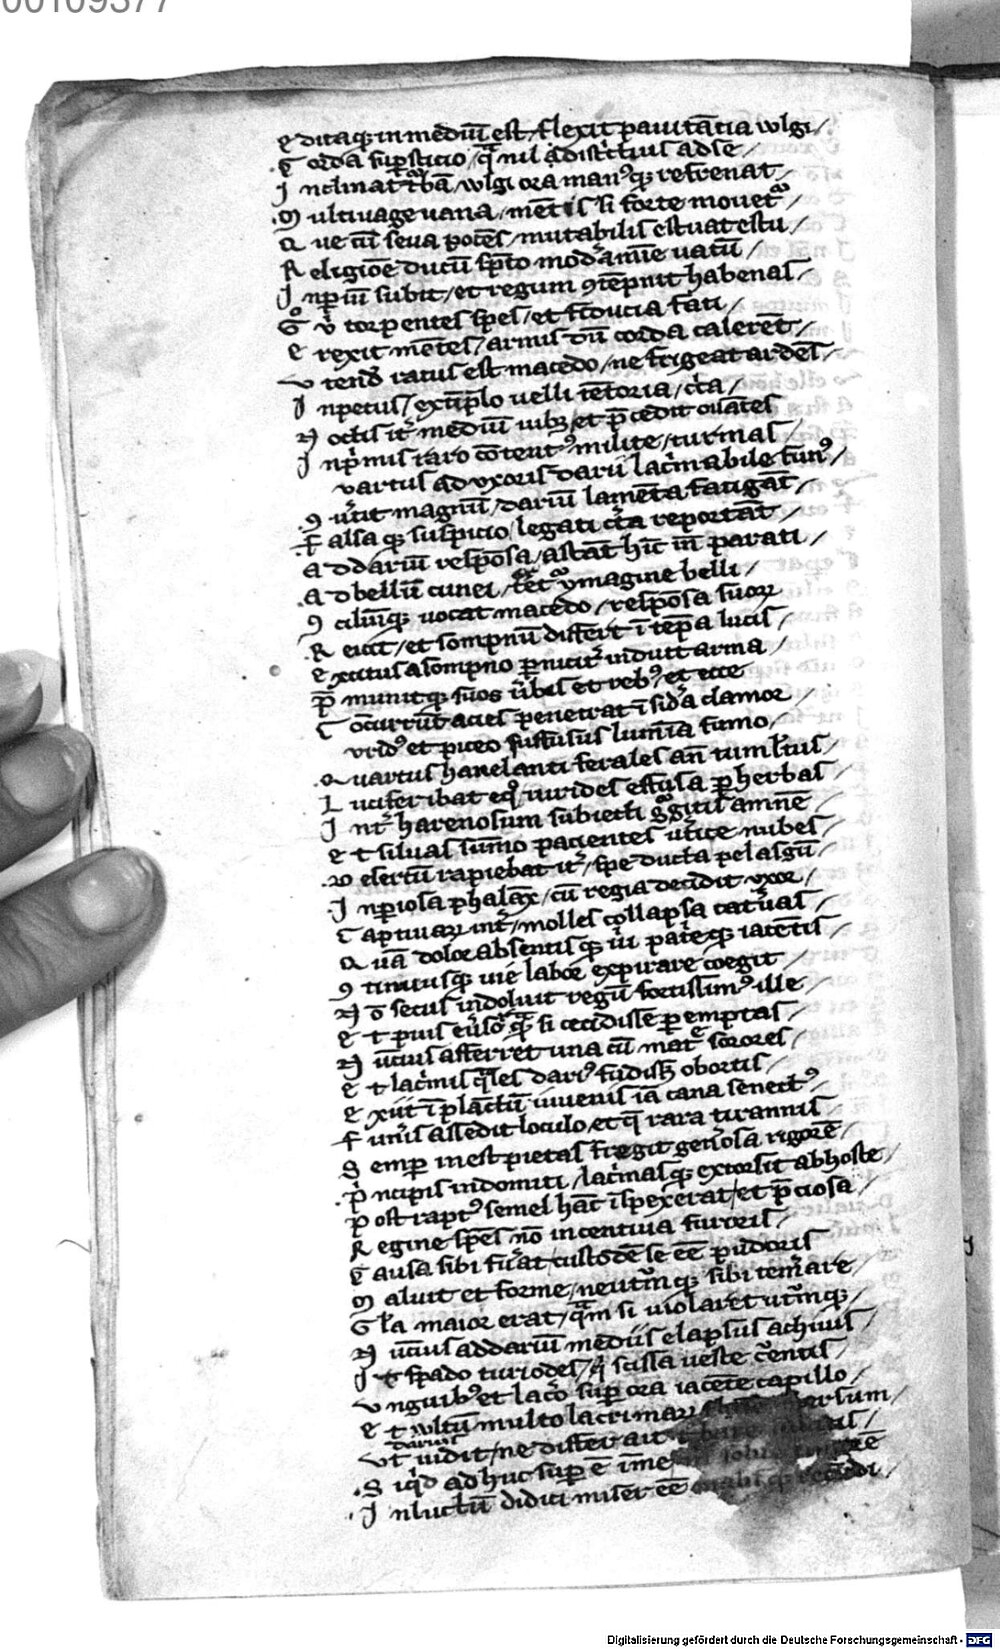 00109377
editaq; in mediū est, flexit pauitātia wlgi /
Corda suꝑsticio, qª nil ꝗdistrictius ad se /
Inclinat tᵇbā, wlgi ora manꝰq; refrenat /
Multiuage uana, mētis si forte mouetᷣ /
Que cū seua potēs, mutabilis estuat estu /
Religiōe ducū sp̄to modᵉamīe uatū /
Inp̄iū subit, et regum ꝯtēpnit habenas /
Gͦ uͥ torpentes sp̄es, et fiducia fati /
erexit mētes, armis dū corda calerēt /
vtend̄ ratus est macedo, ne frigeat ardēs /
Inpetus, extīplo uelli tētoria, cͥta /
Noctis itᷣ mediū iubꝫ, et p̄cedit ouātes
Inpͥmis raro cōtentꝰ milite, turmas /
vartus ad vxoris darii lacͥmabile funꝰ /
ꝯuᷣtit magnū, dariū lamēta fatigāt /
falsa q; suspicio, legati cᷣta reportāt /
Ad dariū respōsa, astāt hīc īn parati /
Ad bellū cunei, ymagine belli /
ꝯciliūq; uocat macedo, respōsa suoꝝ
Reicit, et sompnū differt ī tēpa lucis /
excitus a sompno ꝑnicitᷣ induit arma /
P̄munitq; suos uᷣbis et rebꝰ, et ecce
Cōcurrūt acies penetrat ī sidᷣa clamor /
vridꝰ et piceo suffusus lumīa fumo /
quartus hanelanti ferales an̄ tumltus /
Lucifer ibat eqꝰ, uirides effusa ꝑ herbas /
Intᷣ harenosum subiecti gᵍitis amnē /
et siluas sumo pacientes uᷣtice nubes /
Desertū rapiebat itᷣ, spe ducta pelasgū /
Inꝑiosa phalāx, cū regia decidit vxor /
Captiuaꝝ intᷣ, molles collapsa catᷣuas /
Quā dolor absentis q; uiͥ patͥeq; iacētis /
ꝯtinuusq; uie labor expirare coegit /
Nō secus indoluit regū fortissimꝰ ille /
et pius eūsoᷣ qͣ si cecidisse ꝑemptas /
Nūcius afferret una cū matᷣe sorores /
et lacͥmis qͣles dariꝰ fudisꝫ obortis /
exiit ī planctū iuuenis iā cana senectꝰ /
funᷣis assedit loculo, et qͥ rara tirannis /
Semꝑ inest pietas fregit genᷣosa rigorē /
Pͥncipis indomiti, lacͥmasq; extorsit ab hoste /
post raptꝰ semel hāc īspexerat, et p̄ciosa /
Regine sp̄es nō incentiua furoris /
Causa sibi fuᷣat, custodē se eē pudoris /
maluit et forme, neutrūq; sibi temᷣare /
Gla maior erat, qͣm si uiolaret utrūq; /
Nūcius ad dariū mediis elapsus achiuis /
It spado turiodes, qͥ scissa ueste cᷣentis /
vnguibꝰ et lacͦ suꝑ ora iacēte capillo /
et wltū multo lacrimaꝝ
darius
vt uidit, ne differ ait
Siqͥd adhuc suꝑ ē īme
Inluctū didici miser eē
Digitalisierung gefördert durch die Deutsche Forschungsgemeinschaft - DFG